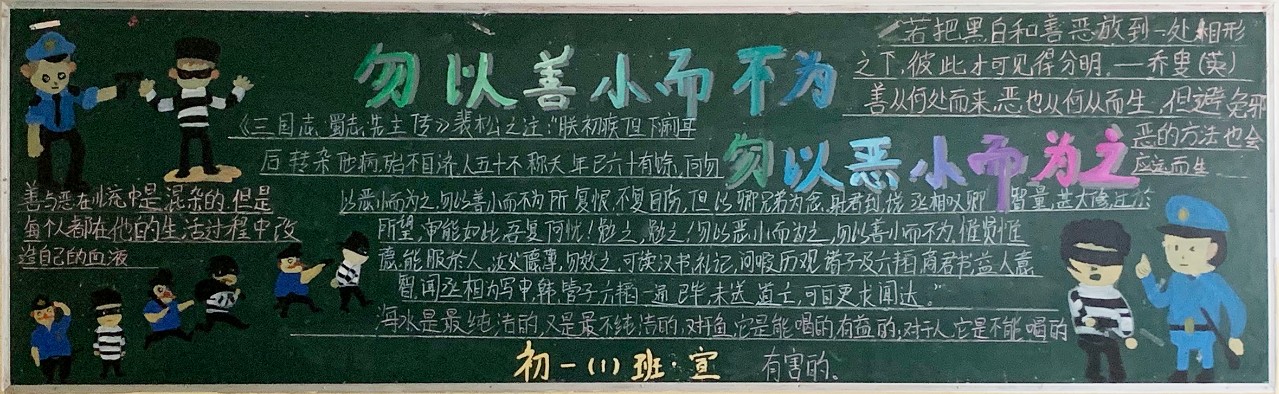 勿以善小而不为
勿以恶小而为之
若把黑白和善恶放到一处相形
之下,彼此才可见得分明。—乔叟(英)
善从何处而来,恶也从何从而生,但避免邪
恶的方法也会
应运而生
《三国志·蜀志·先主传》裴松之注:“朕初疾但下痢耳
后转杂他病,殆不自济人五十不称夭年已六十有馀,何
以恶小而为之,勿以善小而不为所复恨,不复自伤,但以卿兄弟为念,射君到,说丞相叹卿智量,甚大
所望,审能如此吾复何忧!勉之,勉之!勿以恶小而为之,勿以善小而不为,惟贤惟
德,能服于人,汝父德薄,勿效之,可读汉书礼记,间暇历观诸子及六韬,商君书,益人意
智,闻丞相为写申,韩,管子,六韬一通已毕,未送道亡,可自更求闻达。”
善与恶在水流中是混杂的,但是
每个人都在他的生活过程中改
造自己的血液
海水是最纯洁的,又是最不纯洁的,对于鱼,它是能喝的,有益的,对于人,它是不能喝的
有害的。
初一(1)班·宣